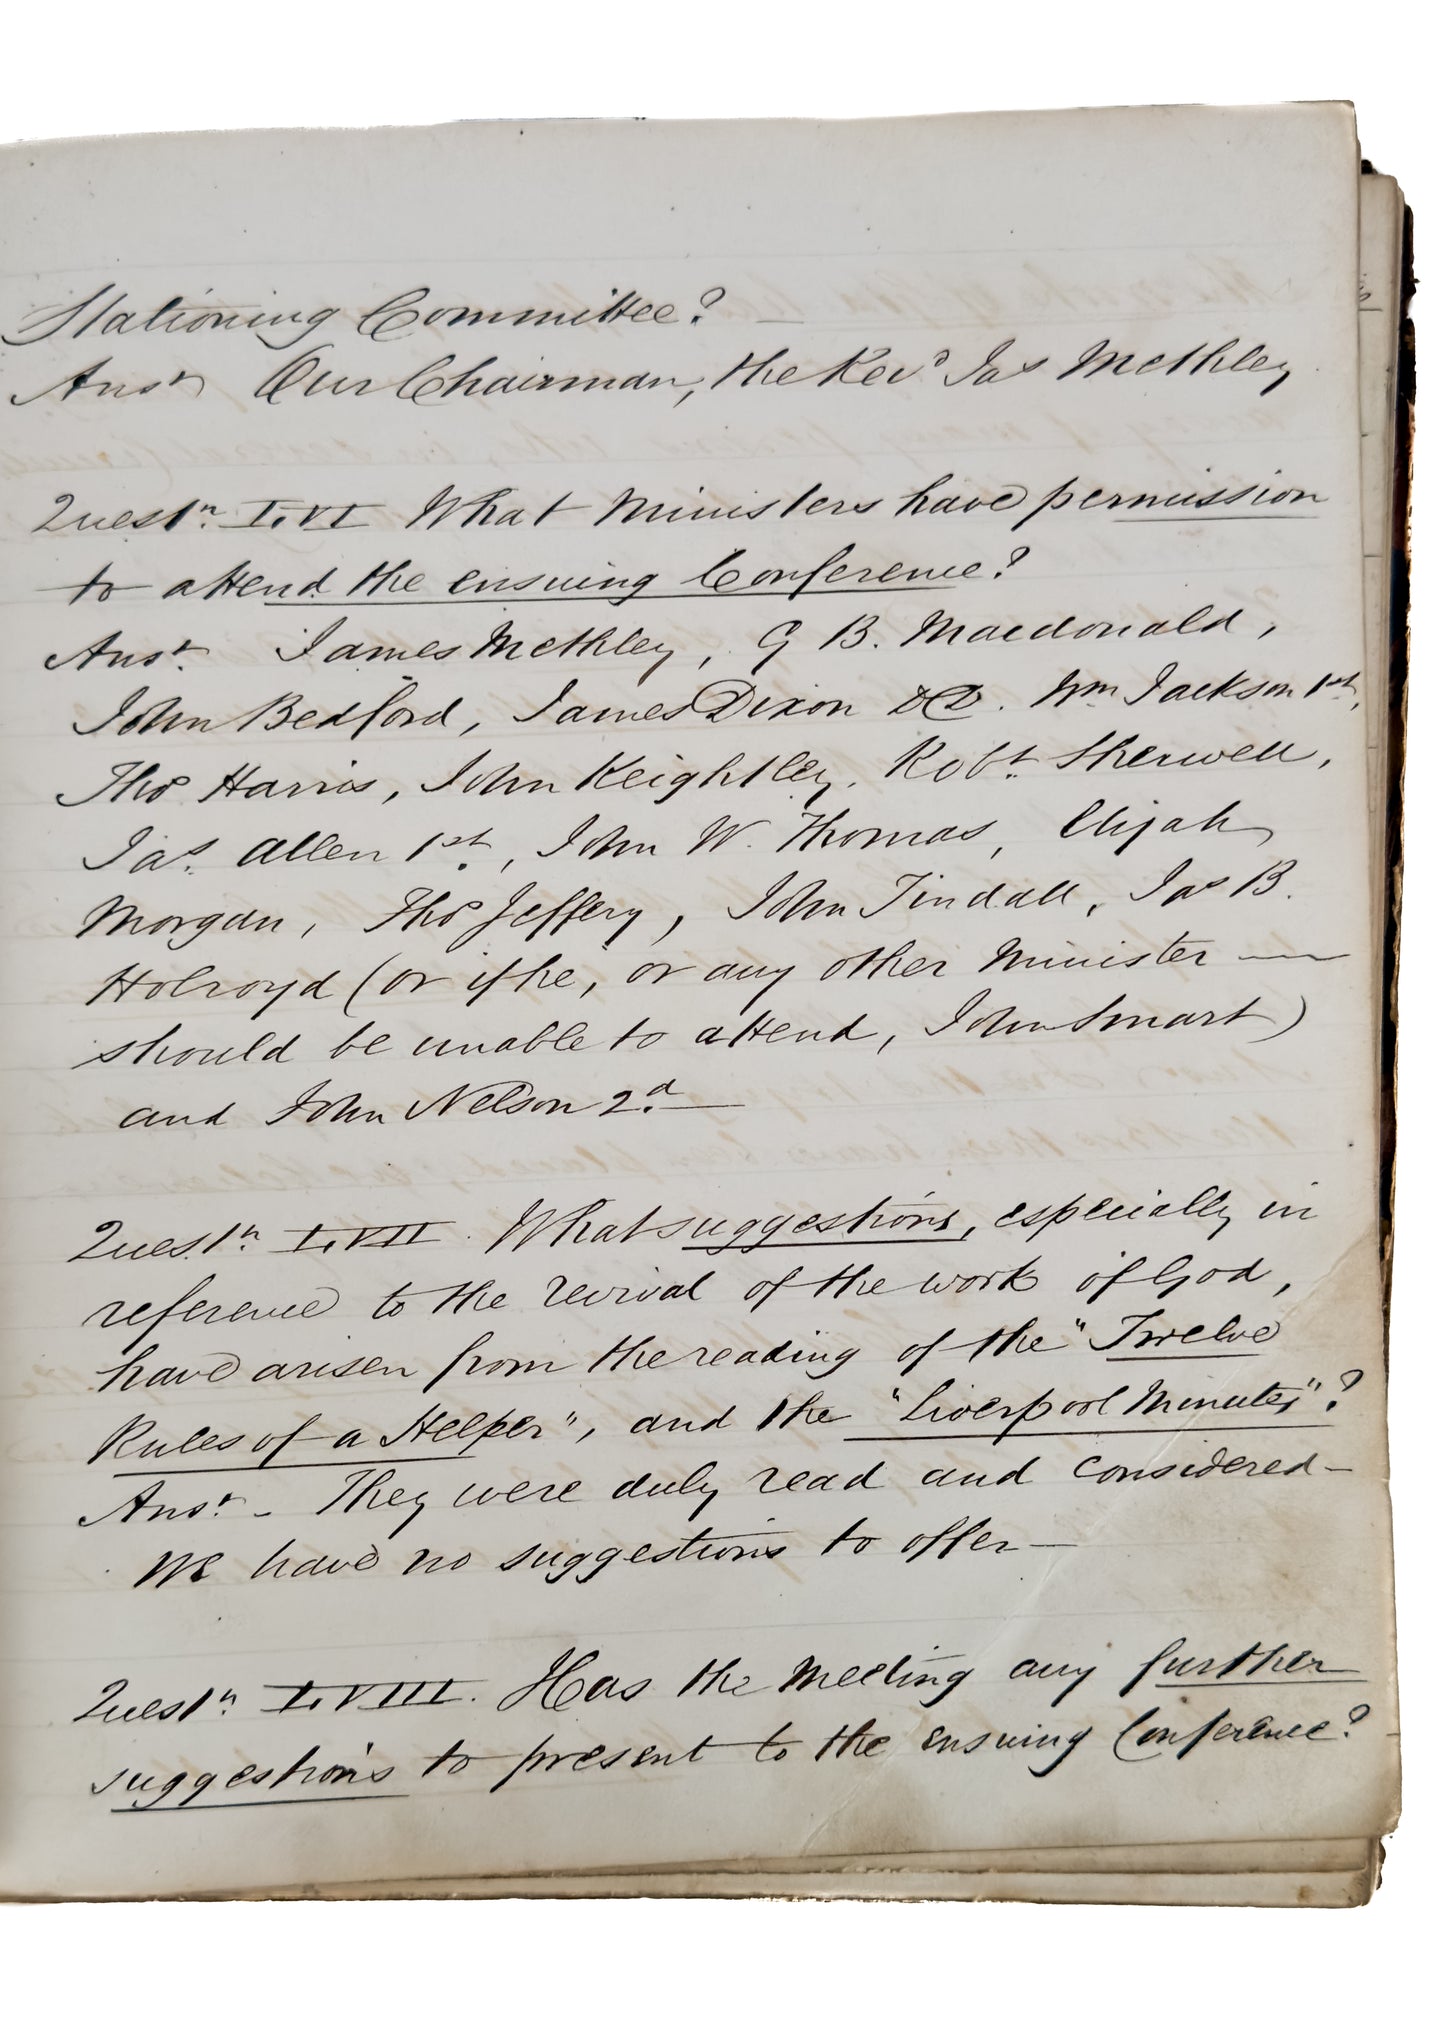 Stationing Committee? —
Ansr Our Chairman, the Revd Jas Methley
Questn. LVI What Ministers have permission
to attend the ensuing Conference?
Ansr. James Methley, G B. Macdonald,
John Bedford, James Dixon DD. Wm Jackson 1st,
Thos Harris, John Keightley, Robt. Sherwell,
Jas. Allen 1st, John W. Thomas, Elijah
Morgan, Thos Jeffery, John Tindall, Jas B.
Holroyd (or if he, or any other Minister —
should be unable to attend, John Smart)
and John Nelson 2d. —
Questn. LVII. What suggestions, especially in
reference to the revival of the work of God,
have arisen from the reading of the "Twelve
Rules of a Helper", and the "Liverpool Minutes"?
Ansr. - They were duly read and considered -
We have no suggestions to offer —
Questn. LVIII. Has the Meeting any further
suggestions to present to the ensuing Conference?